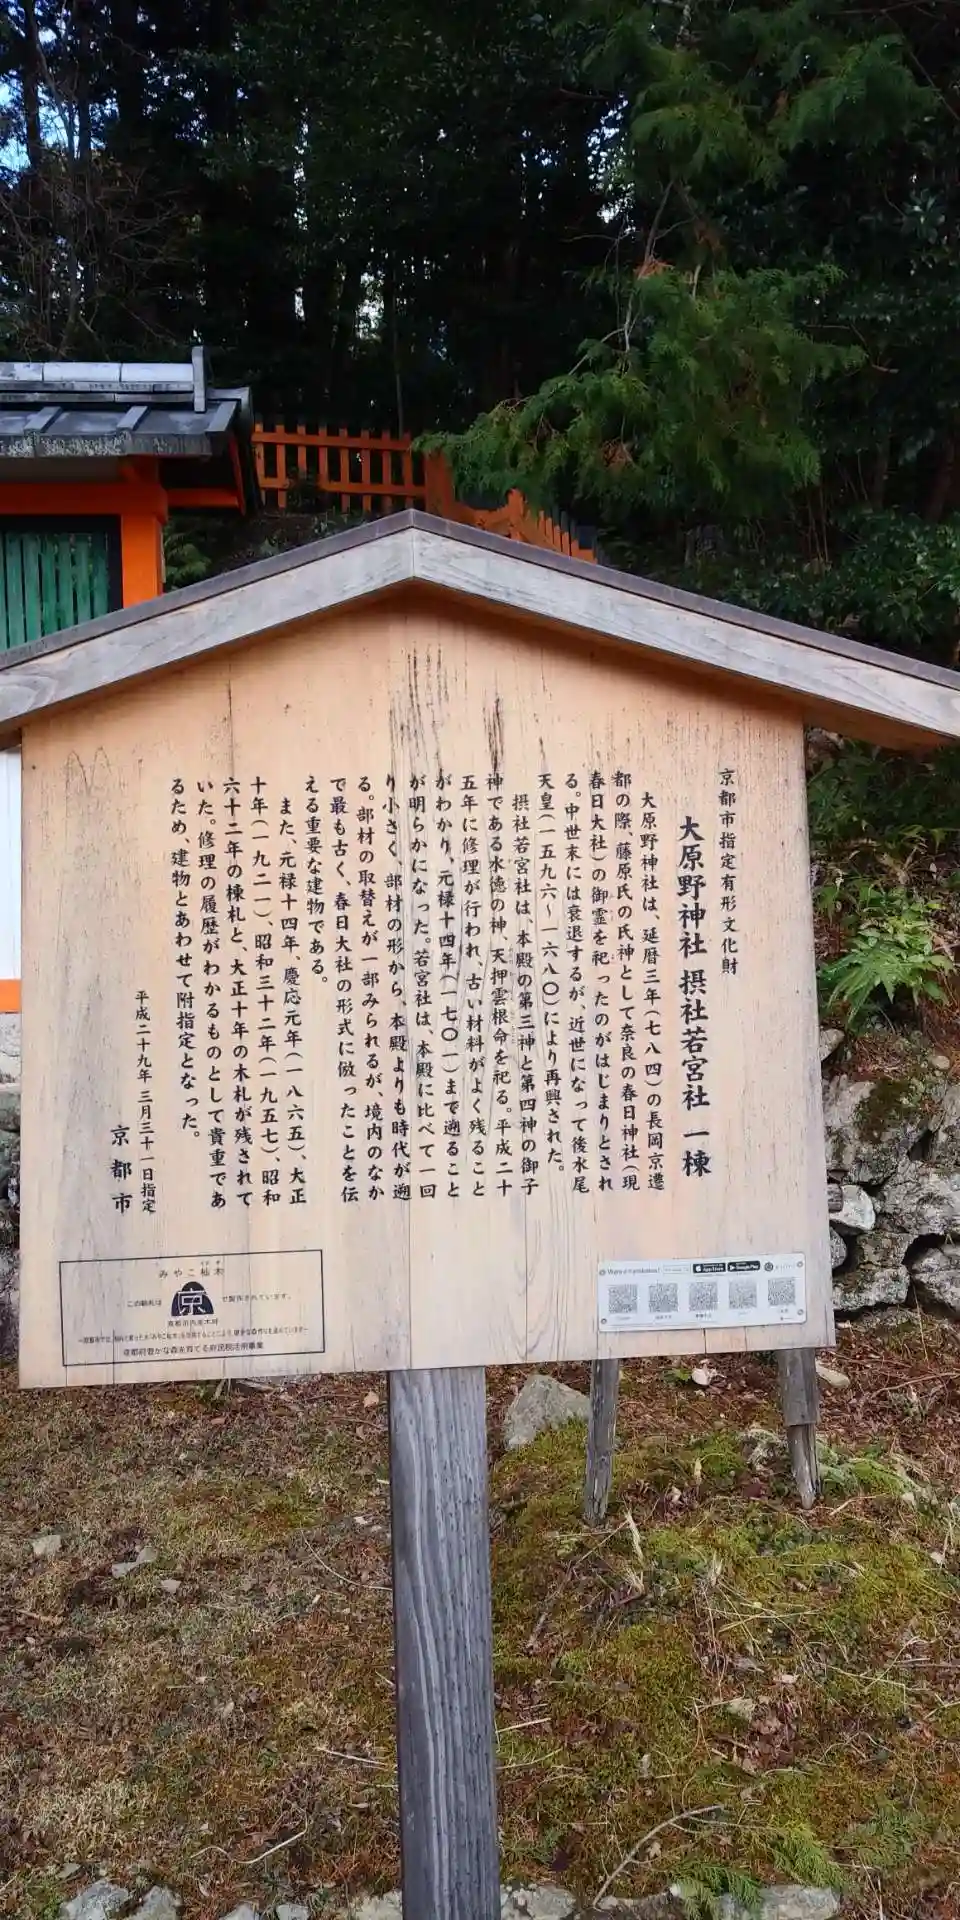 京都市指定有形文化財
大原野神社 摂社若宮社 一棟
大原野神社は、延暦三年(七八四)の長岡京遷
都の際、藤原氏の氏神として奈良の春日神社(現
春日大社)の御霊を祀ったのがはじまりとされ
る。中世末には衰退するが、近世になって後水尾
天皇(一五九六〜一六八〇)により再興された。
摂社若宮社は、本殿の第三神と第四神の御子
神である水徳の神、天押雲根命を祀る。平成二十
五年に修理が行われ、古い材料がよく残ること
がわかり、元禄十四年(一七〇一)まで遡ること
が明らかになった。若宮社は、本殿に比べて一回
り小さく、部材の形から、本殿よりも時代が遡
る。部材の取替えが一部みられるが、境内のなか
で最も古く、春日大社の形式に倣ったことを伝
える重要な建物である。
また、元禄十四年、慶応元年(一八六五)、大正
十年(一九二一)、昭和三十二年(一九五七)、昭和
六十二年の棟札と、大正十年の木札が残されて
いた。修理の履歴がわかるものとして貴重であ
るため、建物とあわせて附指定となった。
平成二十九年 三月三十一日指定
京都市
みやこ杣木
この駒札は 京 で製作されています。
京都市内産木材
京都府豊かな森を育てる府民税活用事業
App Store
Google Play